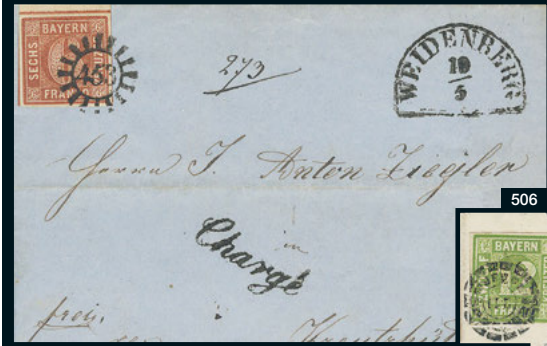 BAYERN
SECHS
FRANCO
453
273
WEIDENBERG
19
5
Herrn J. Anton Ziegler
in
Chargé
frei.
506
BAYERN